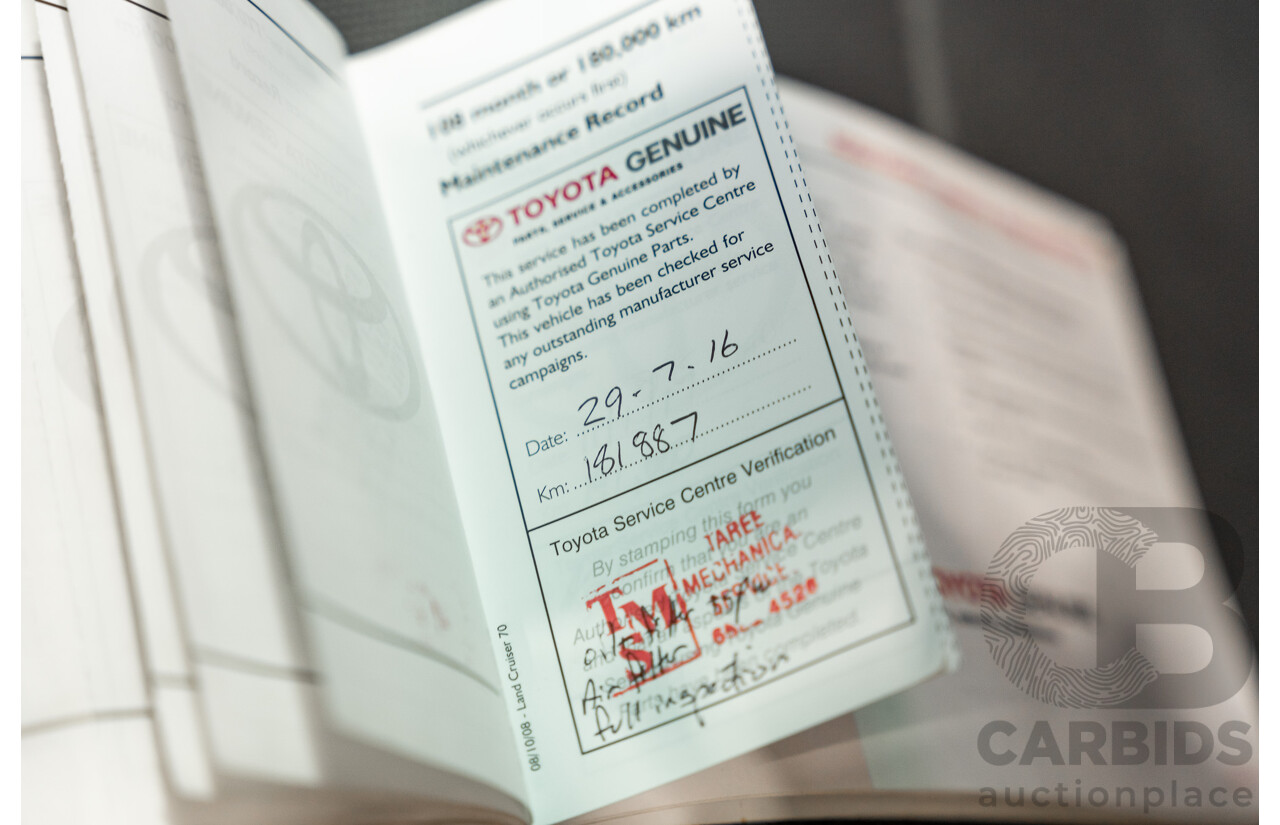 108 month or 180,000 km
(whichever occurs first)
Maintenance Record
TOYOTA GENUINE
PARTS, SERVICE & ACCESSORIES
This service has been completed by
an Authorised Toyota Service Centre
using Toyota Genuine Parts.
This vehicle has been checked for
any outstanding manufacturer service
campaigns.
Date: 29-7.16
Km: 181887
Toyota Service Centre Verification
By stamping this form you
confirm that you are an
Centre
Toyota
Genuine
completed.
TAREE
MECHANICA
SERVICE
4526
TMS
Air filter
full inspection
08/10/08 - Land Cruiser 70
CARBIDS
auctionplace